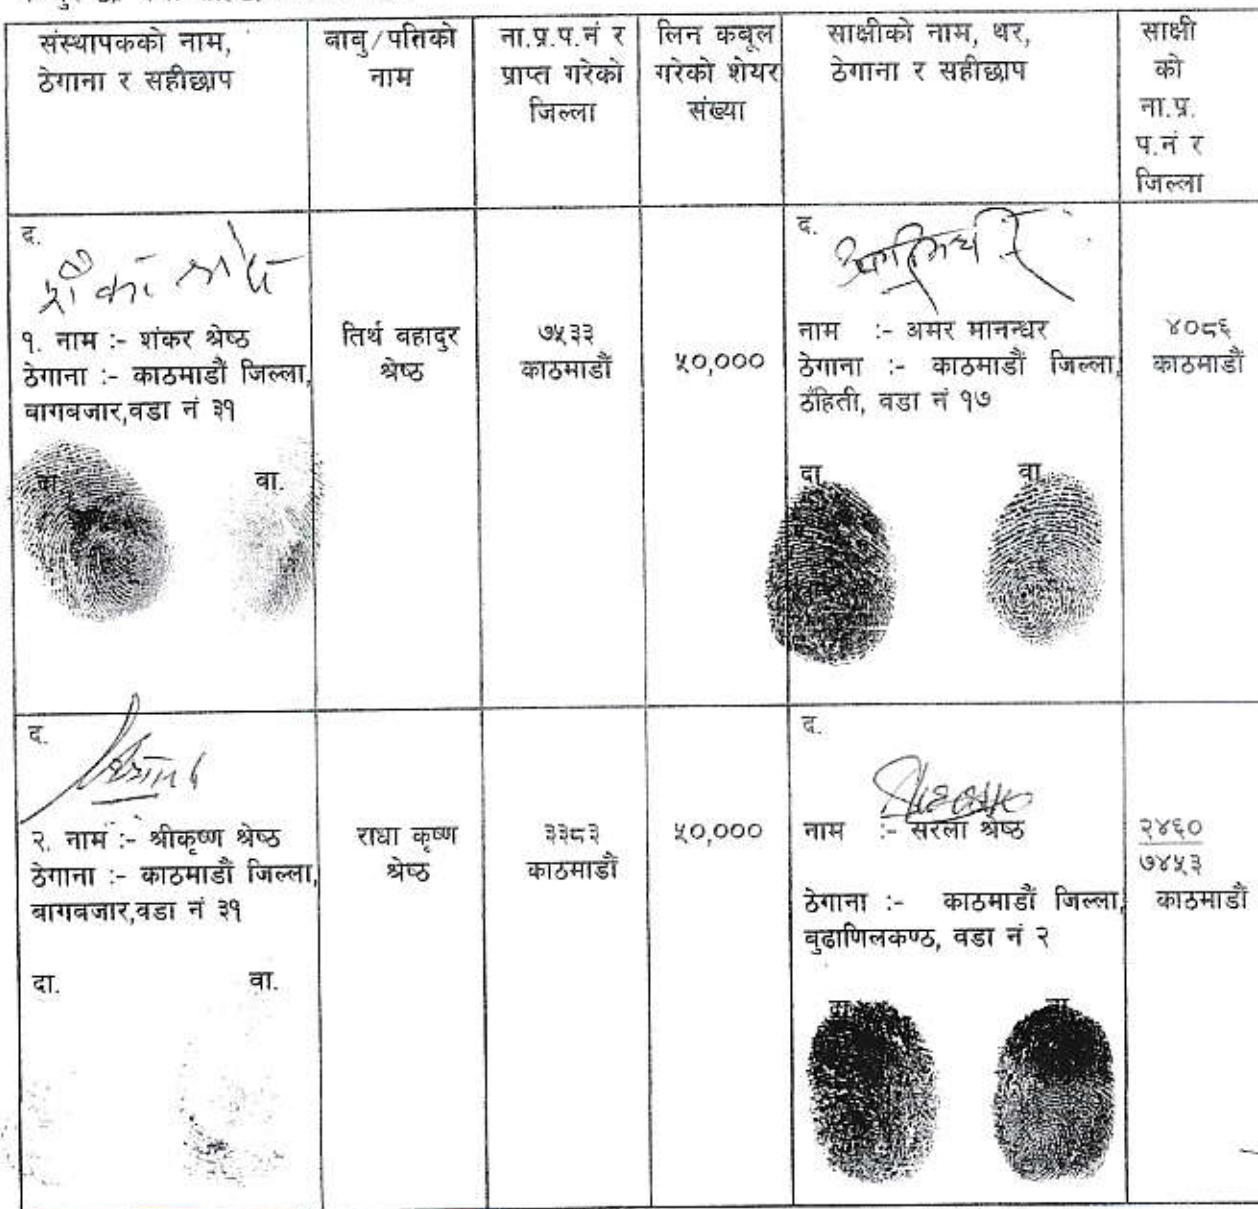 संस्थापकको नाम,
ठेगाना र सहीछाप
बाबु/पतिको
नाम
ना.प्र.प.नं र
प्राप्त गरेको
जिल्ला
लिन कबूल
गरेको शेयर
संख्या
साक्षीको नाम, थर,
ठेगाना र सहीछाप
साक्षी
को
ना.प्र.
प.नं र
जिल्ला
द.
१. नाम :- शंकर श्रेष्ठ
ठेगाना :- काठमाडौं जिल्ला,
बागबजार,वडा नं ३१
दा.
वा.
तिर्थ बहादुर
श्रेष्ठ
७५३३
काठमाडौं
५०,०००
द.
नाम :- अमर मानन्धर
ठेगाना :- काठमाडौं जिल्ला,
ठँहिती, वडा नं १७
दा.
वा.
४०८६
काठमाडौं
द.
२. नाम :- श्रीकृष्ण श्रेष्ठ
ठेगाना :- काठमाडौं जिल्ला,
बागबजार,वडा नं ३१
दा.
वा.
राधा कृष्ण
श्रेष्ठ
३३८३
काठमाडौं
५०,०००
द.
नाम :- सरला श्रेष्ठ
ठेगाना :- काठमाडौं जिल्ला,
बुढाणिलकण्ठ, वडा नं २
दा.
वा.
२४६०
७४५३
काठमाडौं